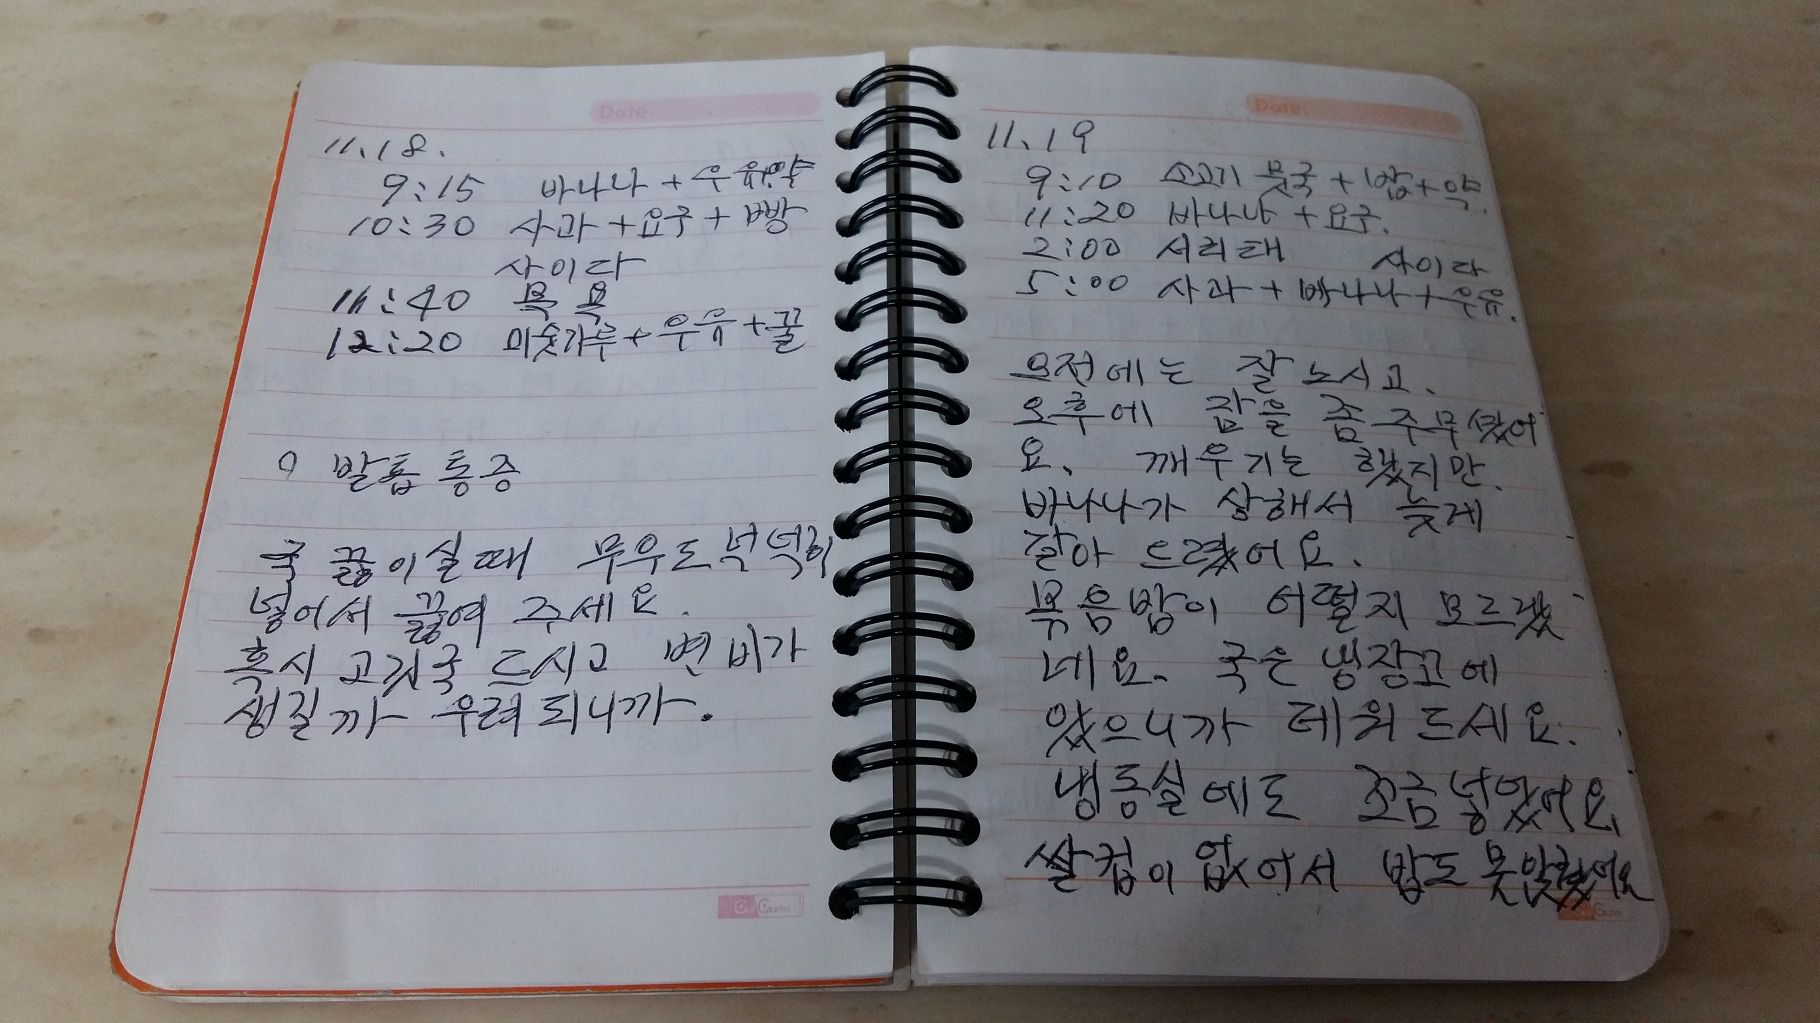 Date.
11.18.
9:15 바나나 + 우유+약
10:30 사과 + 요구 + 빵
사이다
11:40 목욕
12:20 미숫가루 + 우유 + 꿀
발톱 통증
국 끓이실때 무우도 넉넉히
넣어서 끓여 주세요.
혹시 고깃국 드시고 변비가
생길까 우려되니까.
Date.
11.19
9:10 소고기 뭇국 + 밥 + 약.
11:20 바나나 + 요구.
2:00 서리태 사이다
5:00 사과 + 바나나 + 우유.
오전에는 잘 노시고.
오후에 잠을 좀 주무셨어
요. 깨우기는 했지만.
바나나가 상해서 늦게
갈아 드렸어요.
볶음밥이 어떨지 모르겠
네요. 국은 냉장고에
있으니까 데워 드세요.
냉동실에도 조금 넣었어요.
쌀컵이 없어서 밥도 못앉혔어요